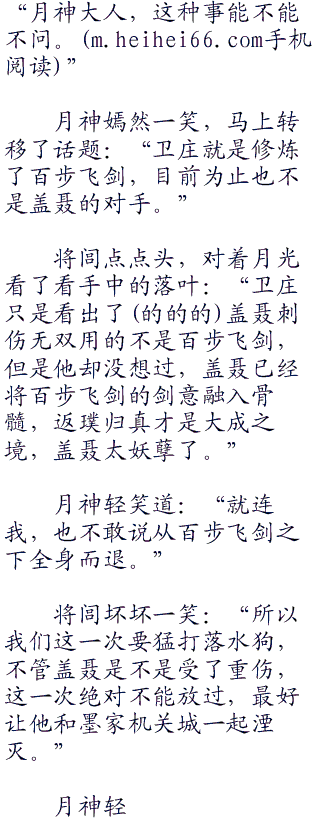 “月神大人，这种事能不能
不问。(m.heihei66.com手机
阅读)”
月神嫣然一笑，马上转
移了话题：“卫庄就是修炼
了百步飞剑，目前为止也不
是盖聂的对手。”
将闾点点头，对着月光
看了看手中的落叶：“卫庄
只是看出了(的的的)盖聂刺
伤无双用的不是百步飞剑，
但是他却没想过，盖聂已经
将百步飞剑的剑意融入骨
髓，返璞归真才是大成之
境，盖聂太妖孽了。”
月神轻笑道：“就连
我，也不敢说从百步飞剑之
下全身而退。”
将闾坏坏一笑：“所以
我们这一次要猛打落水狗，
不管盖聂是不是受了重伤，
这一次绝对不能放过，最好
让他和墨家机关城一起湮
灭。”
月神轻